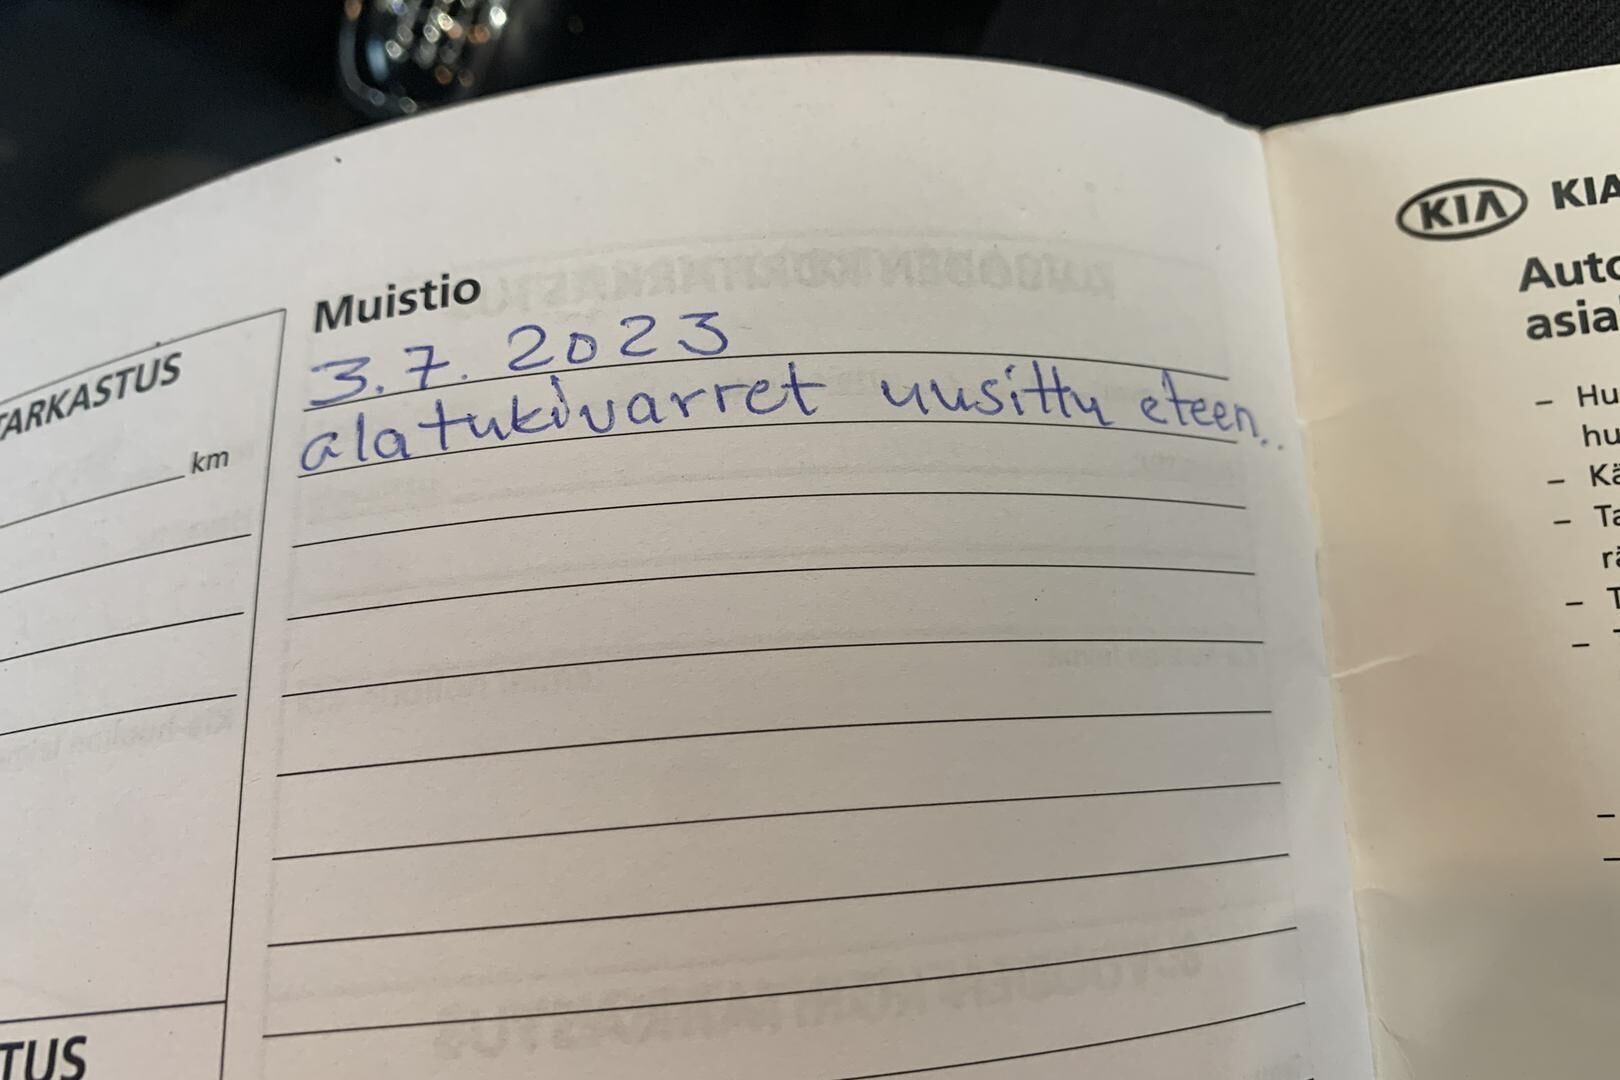 TARKASTUS
km
TUS
Muistio
3.7.2023
alatukivarret uusittu eteen..
KIA KIA
Auto
asia
- Hu
hu
- Kä
- Ta
rä
- T
-
-
-